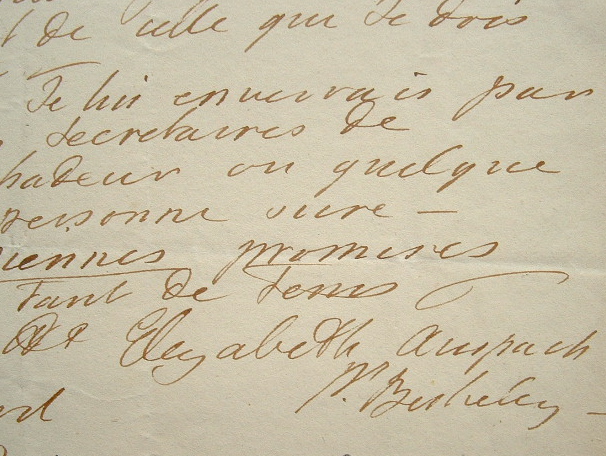 de celle que Je dois
Je lui enverrais par
Secretaires de
hadeur ou quelque
personne sure —
iennes promises
tant de tems
Elizabeth Anspach
N. Berkeley —